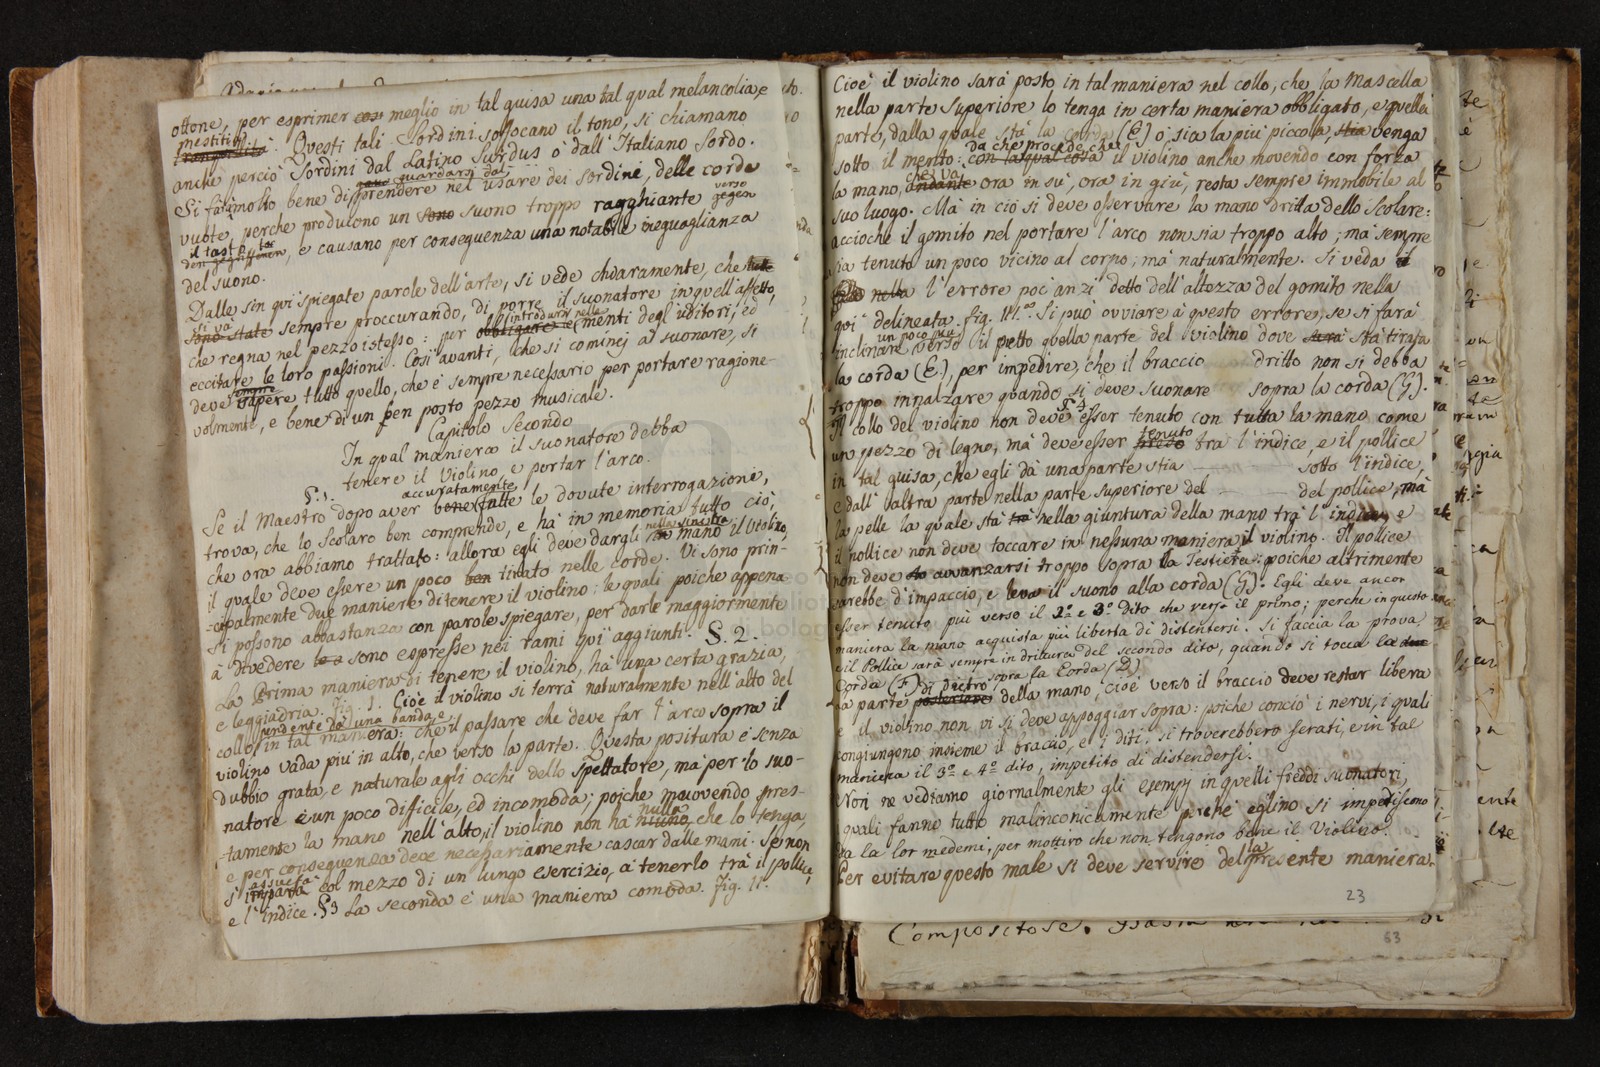 ottone, per esprimer così meglio in tal guisa una tal qual melancolia, e
mestitia
Questi tali Sordini soffocano il tono, si chiamano
anche perciò Sordini dal Latino Surdus ò dall'Italiano Sordo.
guardarsi dal
Si farà molto bene nel usare dei Sordine, delle corde
verso
vuote, perche producono un sono suono troppo ragghiante gegen
il tasto
den gegriffenen, e causano per conseguenza una notabile ineguaglianza
del suono.
Dalle sin quì spiegate parole dell'arte, si vede chiaramente, che tutte
si và porre
sono state sempre proccurando, di il suonatore in quell'affetto,
introdurr nelle
che regna nel pezzo istesso: per obbligare le menti degl'uditori; ed
eccitare le loro passioni. Così avanti, che si cominej à suonare, si
sempre
deve sapere tutto quello, che è sempre necessario per portare ragione-
volmente, e bene di un ben posto pezzo musicale.
Capitolo Secondo
In qual maniera il suonatore debba
tenere il Violino, e portar l'arco.
§. 1. accuratamente
Se il Maestro dopo aver bene fatte le dovute interrogazione,
trova, che lo Scolaro ben comprende, e hà in memoria tutto ciò,
nella sinistra
che ora abbiamo trattato: allora egli deve dargli in mano il Violino,
il quale deve essere un poco ben tirato nelle corde. Vi sono prin-
=cipalmente due maniere di tenere il violino: le quali poiche appena
si possono abbastanza con parole spiegare, per darle maggiormente
à divedere sono espresse nei rami quì aggiunti. §. 2.
La Prima maniera di tenere il violino, hà una certa grazia,
e leggiadria. fig. 1. Cioè il violino si terrà naturalmente nell'alto del
pendente da una banda
collo, in tal maniera: che il passare che deve far l'arco sopra il
violino vada piú in alto, che verso la parte. Questa positura è senza
dubbio grata, e naturale agli occhi dello Spettatore, ma per lo suo-
natore è un poco difficile, ed incomoda; poiche muovendo pres-
nulla
=tamente la mano nell'alto, il violino non hà niuno, che lo tenga,
e per conseguenza deve necessariamente cascar dalle mani. Se non
assuefà
s'impara col mezzo di un lungo esercizio, à tenerlo trà il pollice,
e l'indice. §3 La seconda è una maniera comoda. fig. II.
Cioè il violino sarà posto in tal maniera nel collo, che la Mascella
nella parte Superiore lo tenga in certa maniera obbligato, e quella
parte, dalla quale stà la corda (E) ò sia la piu' piccola, stia venga
da che procede che
sotto il mento: con la qual cosa il violino anche movendo con forza
che va
la mano, andante ora in sù, ora in giù, resta sempre immobile al
suo luogo. Mà in ciò si deve osservare la mano dritta dello Scolare:
accioche il gomito nel portare l'arco non sia troppo alto; ma sempre
sia tenuto un poco vicino al corpo; mà naturalmente. Si veda
nella l'errore poc'anzi detto dell'altezza del gomito nella
quì delineata fig. III. Si può ovviare à questo errore, se si farà
un poco più
inclinare verso il petto quella parte del violino dove sarà stà tirata
la corda (E.), per impedire, che il braccio dritto non si debba
troppo innalzare quando si deve suonare sopra la corda (G).
Il collo del violino non deve esser tenuto con tutta la mano come
tenuto
un pezzo di legno, mà deve esser trà l'indice, e il pollice
in tal guisa, che egli dà una parte stia sotto l'indice,
e dall'altra parte nella parte superiore del del pollice, mà
la pelle la quale stà trà nella giuntura della mano trà l'indice, e
il pollice non deve toccare in nessuna maniera il violino. Il pollice
non deve avvanzarsi troppo sopra la Testiera: poiche altrimente
sarebbe d'impaccio, e leva il suono alla corda (G). Egli deve ancor
esser tenuto più verso il 2º e 3º dito che verso il primo; perche in questo
maniera la mano acquista più libertà di distentersi. Si faccia la prova,
e il Pollice sarà sempre in dritura del secondo dito, quando si tocca la
Corda (F) sopra la Corda (D)
di dietro
La parte posteriore della mano, cioè verso il braccio deve restar libera
e il violino non vi si deve appoggiar sopra: poiche conciò i nervi, i quali
congiungono insieme il braccio, e i diti, si troverebbero serati, e in tal
maniera il 3º e 4º dito, impetito di distendersi.
Non ne vediamo giornalmente gli esempj in quelli freddi suonatori,
quali fanno tutto malinconicamente perchè eglino si impediscono
da la lor medemi, per mottivo che non tengono bene il Violino.
Per evitare questo male si deve servire della presente maniera.
23
Compositore.
63